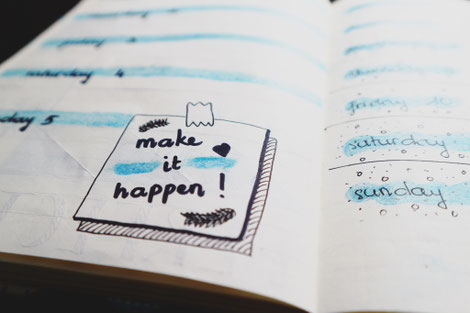 friday
saturday 4
day 5
make
it
happen !
friday 10
saturday
sunday